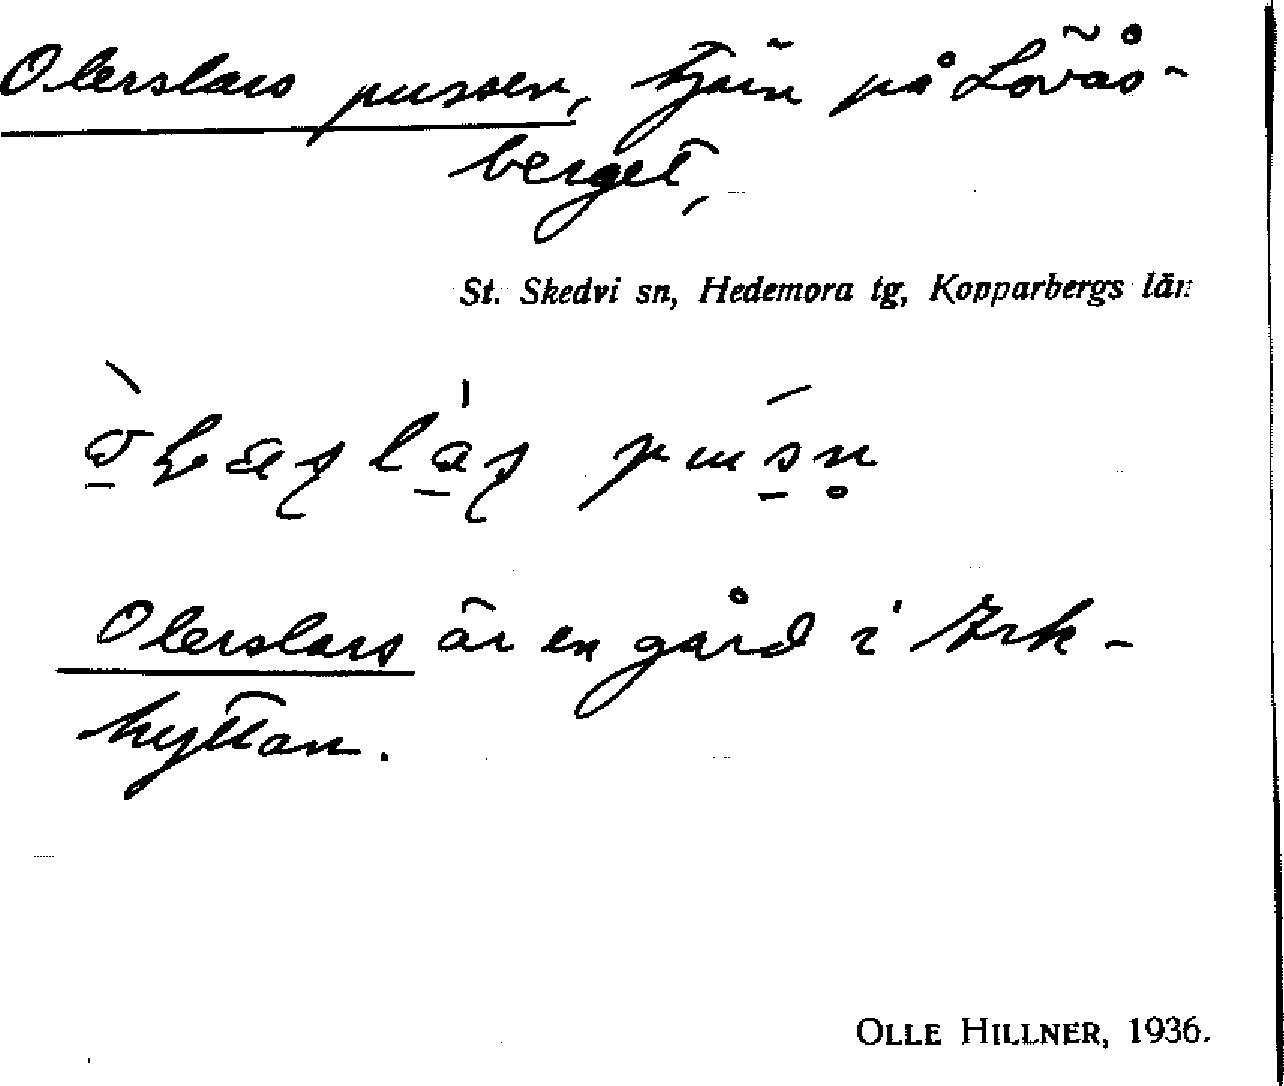 Olerslars pussen, tjärn på Lovås-
berget,
St. Skedvi sn, Hedemora tg, Kopparbergs län
Olerslars är en gård i Ark-
hyttan.
OLLE HILLNER, 1936.